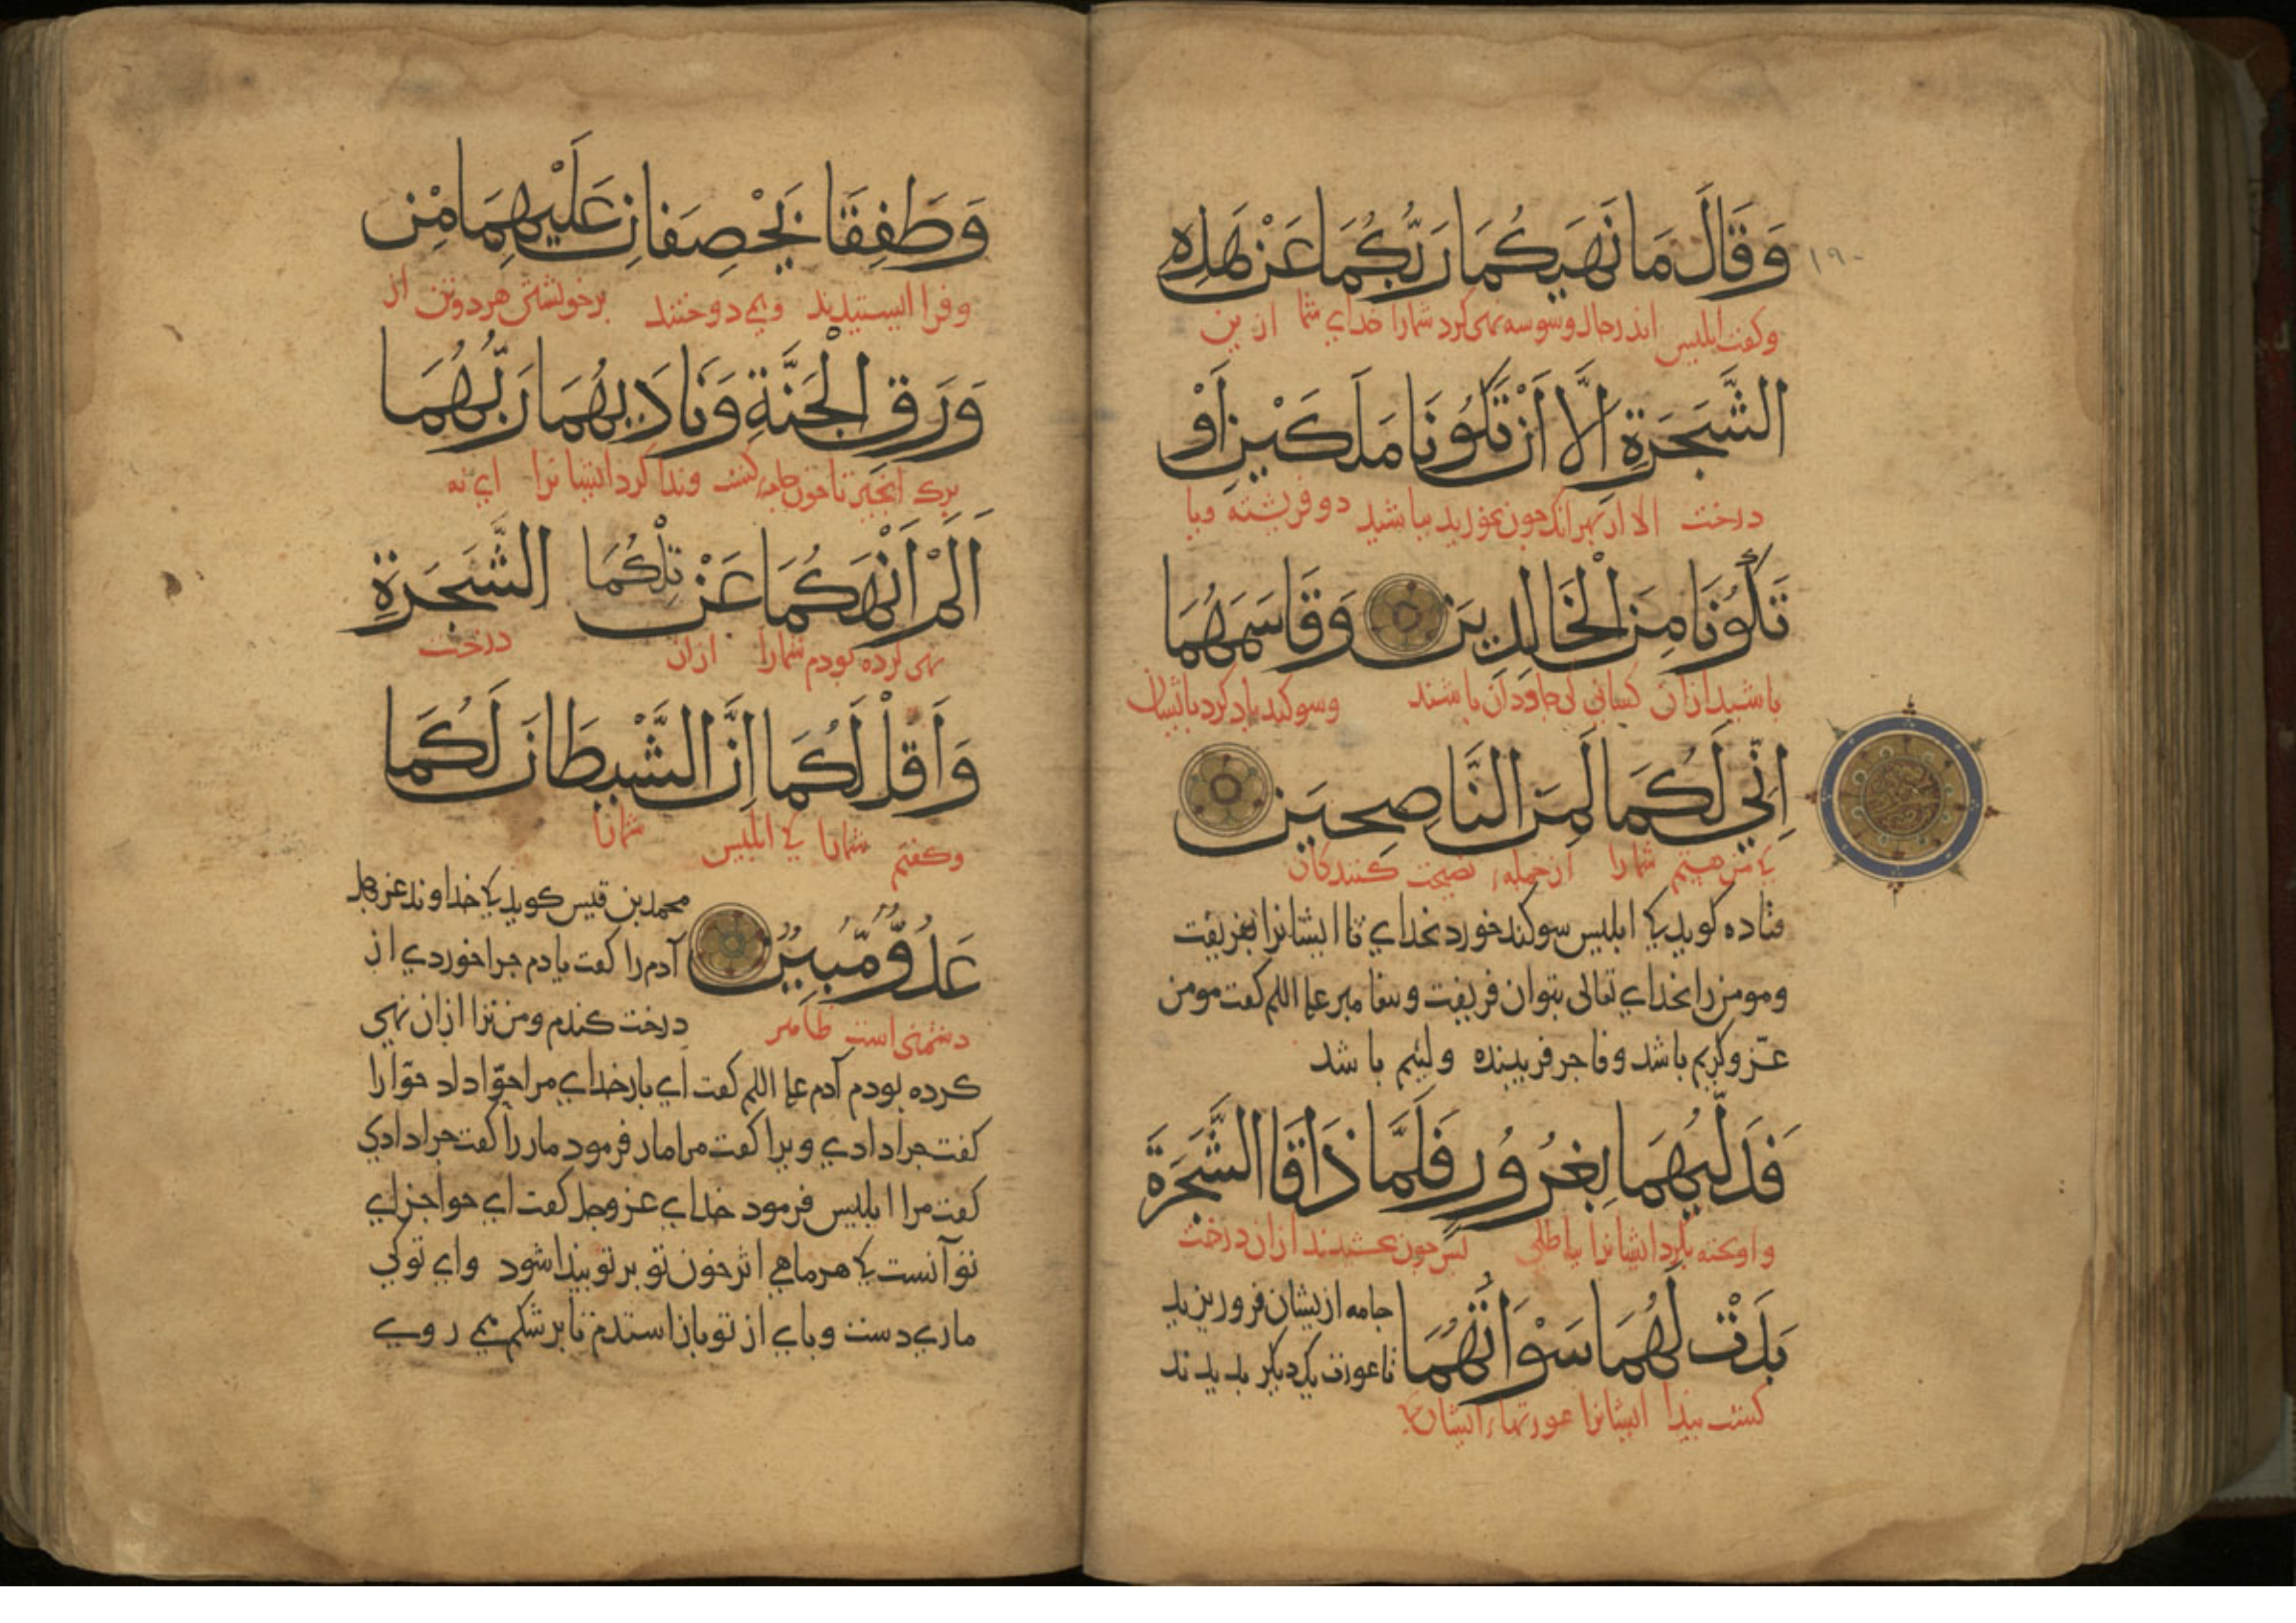 وَقَالَ مَا نَهَيكُمَا رَبُّكُمَا عَنْ هَذِهِ
١٩٠
وكفت ابليس اندر حال وسوسه نهى كرد شمارا خداي شما ازين
الشَّجَرَةِ اِلَّا اَنْ تَكُونَا مَلَكَيْنِ اَوْ
درخت الا از بهر انك چون بخوريد بباشيد دو فرشته ويا
تَكُونَا مِنَ الْخَالِدِينَ وَقَاسَمَهُمَا
باشيد ازان كسانى كى جاودان باشند وسوكند ياد كرد باايشان
اِنِّي لَكُمَا لَمِنَ النَّاصِحِينَ
كى من هستم شمارا از جمله نصيحت كنندكان
قتاده كويد كى ابليس سوكند خورد بخداي تا ايشانرا بفريفت
ومومن را بخداي تعالى بتوان فريفت وبيغامبر علم اللم كفت مومن
عزّ وكريم باشد وفاجر فريبنده ولئيم باشد
فَدَلَّيهُمَا بِغُرُورٍ فَلَمَّا ذَاقَا الشَّجَرَةَ
ايشانرا بباطلى بس چون بچشيدند ازان درخت
بَدَتْ لَهُمَا سَوْاٰتُهُمَا
جامه ازيشان فرو ريزيد
تا عورت يكديكر بديدند
كشت بيدا ايشانرا عورتهاء ايشان
وَطَفِقَا يَخْصِفَانِ عَلَيْهِمَا مِنْ
وفرا ايستيدند ومى دوختند برخويشتن هر دو تن از
وَرَقِ الْجَنَّةِ وَنَادَيهُمَا رَبُّهُمَا
برك انجير تا چون جامه كشت وندا كرد ايشانرا اى نه
اَلَمْ اَنْهَكُمَا عَنْ تِلْكُمَا الشَّجَرَةِ
نهى كرده بودم شمارا ازان درخت
وَاَقُلْ لَكُمَا اِنَّ الشَّيطَانَ لَكُمَا
وكفتم شمارا كى ابليس شمارا
عَدُوٌّ مُّبِينٌ
دشمنى است ظاهر
محمد بن قيس كويد كى خداوند عز وجل
آدم را كفت يا دم چرا خوردي از
درخت كندم ومن ترا ازان نهى
كرده بودم آدم علم اللم كفت اي بار خداي مرا حوّا داد حوّا را
كفت چرا دادي ويرا كفت مرا مار فرمود مار را كفت چرا دادي
كفت مرا ابليس فرمود خداي عز وجل كفت اي حوا جزاي
تو آنست كى هر ماهي اثر خون تو بر تو بيدا شود واي تو كى
ماري دست وباي از تو باز استدم تا بر شكم مى روي